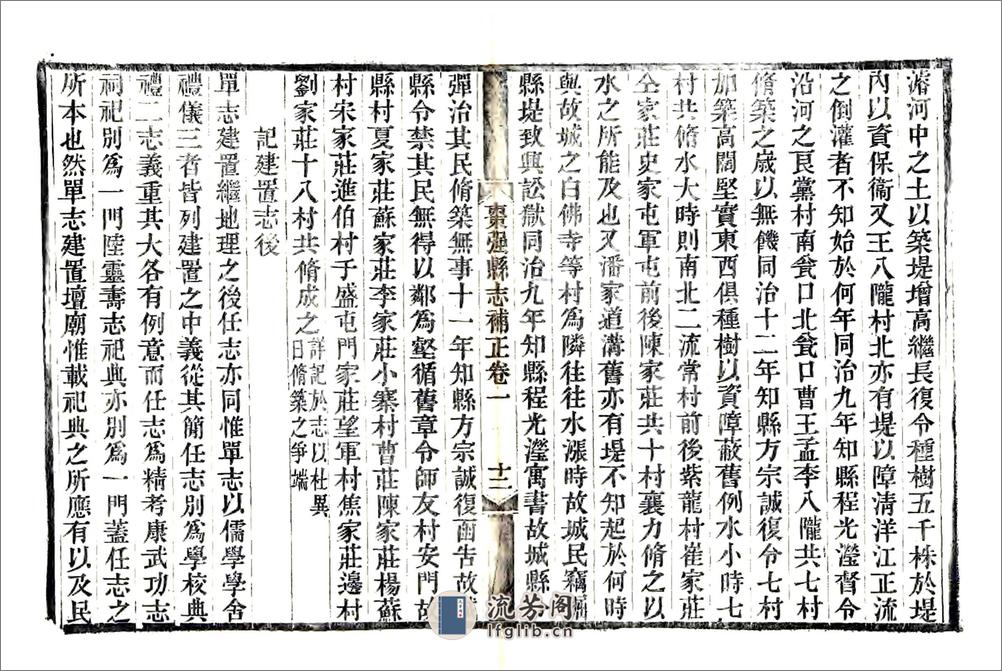 濬河中之土以築堤增高繼長復令種樹五千株於堤
內以資保衞又王八隴村北亦有堤以障清洋江正流
之倒灌者不知始於何年同治九年知縣程光瀅督令
沿河之良黨村南瓮口北瓮口曹王孟李八隴共七村
脩築之歲以無饑同治十二年知縣方宗誠復令七村
加築高闊堅實東西俱種樹以資障蔽舊例水小時七
村共脩水大時則南北二流常村前後紫龍村崔家莊
仝家莊史家屯軍屯前後陳家莊共十村襄力脩之以
水之所能及也又潘家道溝舊亦有堤不知起於何時
與故城之白佛寺等村為隣往往水漲時故城民竊
縣堤致興訟獄同治九年知縣程光瀅寓書故城縣
棗強縣志補正卷一 十二
彈治其民脩築無事十一年知縣方宗誠復函告故
縣令禁其民無得以鄰為壑循舊章令師友村安門
縣村夏家莊蘇家莊李家莊小寨村曹莊陳家莊楊蘇
村宋家莊進伯村子盛屯門家莊望軍村焦家莊邊村
劉家莊十八村共脩成之詳記於志以杜異日脩築之爭端
記建置志後
單志建置繼地理之後任志亦同惟單志以儒學學舍
禮儀三者皆列建置之中義從其簡任志別為學校典
禮二志義重其大各有例意而任志為精考康武功志
祠祀別為一門陸靈壽志祀典亦別為一門蓋任志之
所本也然單志建置壇廟惟載祀典之所應有以及民
流芳閣
lfglib.cn